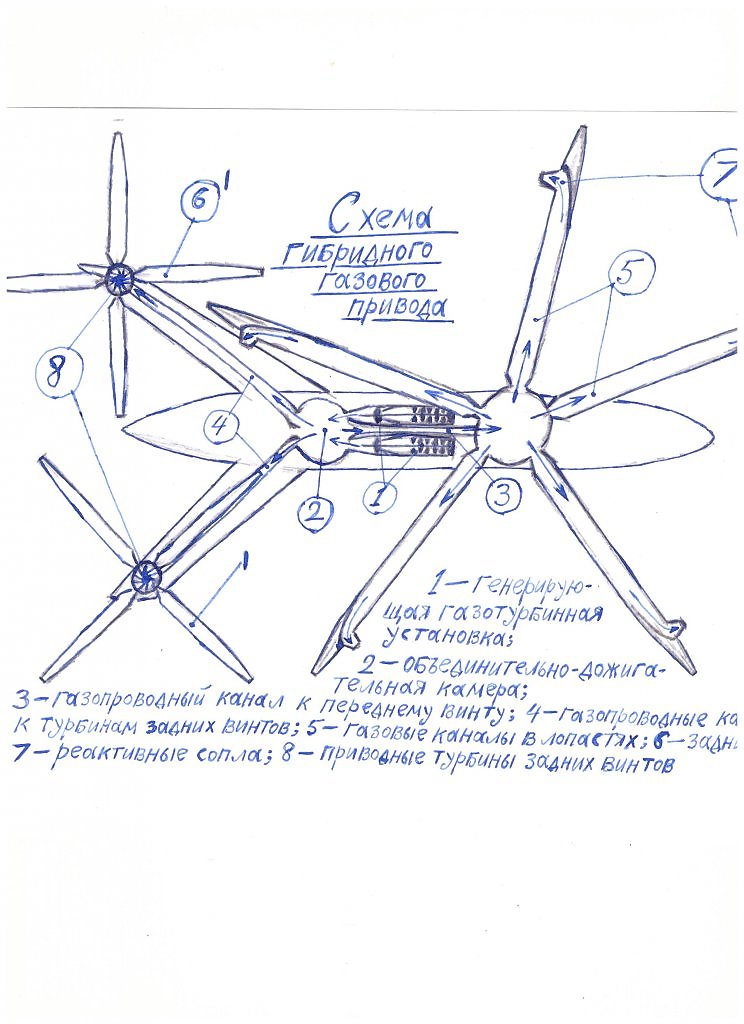 6'
7
Схема
гибридного
газового
привода
5
8
4
1
2
3
1
1 — генерирую-
щая газотурбинная
установка;
2 — объединительно-дожига-
тельная камера;
3 — газопроводный канал к переднему винту; 4 — газопроводные ка
к турбинам задних винтов; 5 — газовые каналы в лопастях; 6 — задн
7 — реактивные сопла; 8 — приводные турбины задних винтов